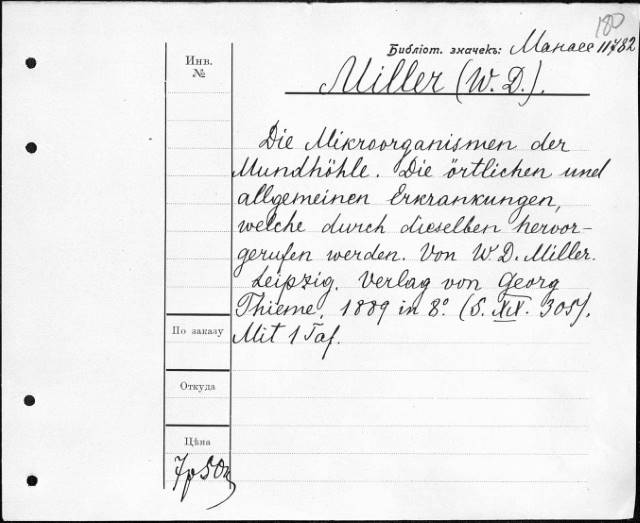 180
Библіот. значекъ: Манасе 11782
Miller (W. D.).
Инв.
№
Die Mikroorganismen der
Mundhöhle. Die örtlichen und
allgemeinen Erkrankungen,
welche durch dieselben hervor-
gerufen werden. Von W. D. Miller.
Leipzig. Verlag von Georg
Thieme, 1889 in 8.° (S. XIX. 305).
Mit 1 Taf.
По заказу
Откуда
Цѣна
7р 50к